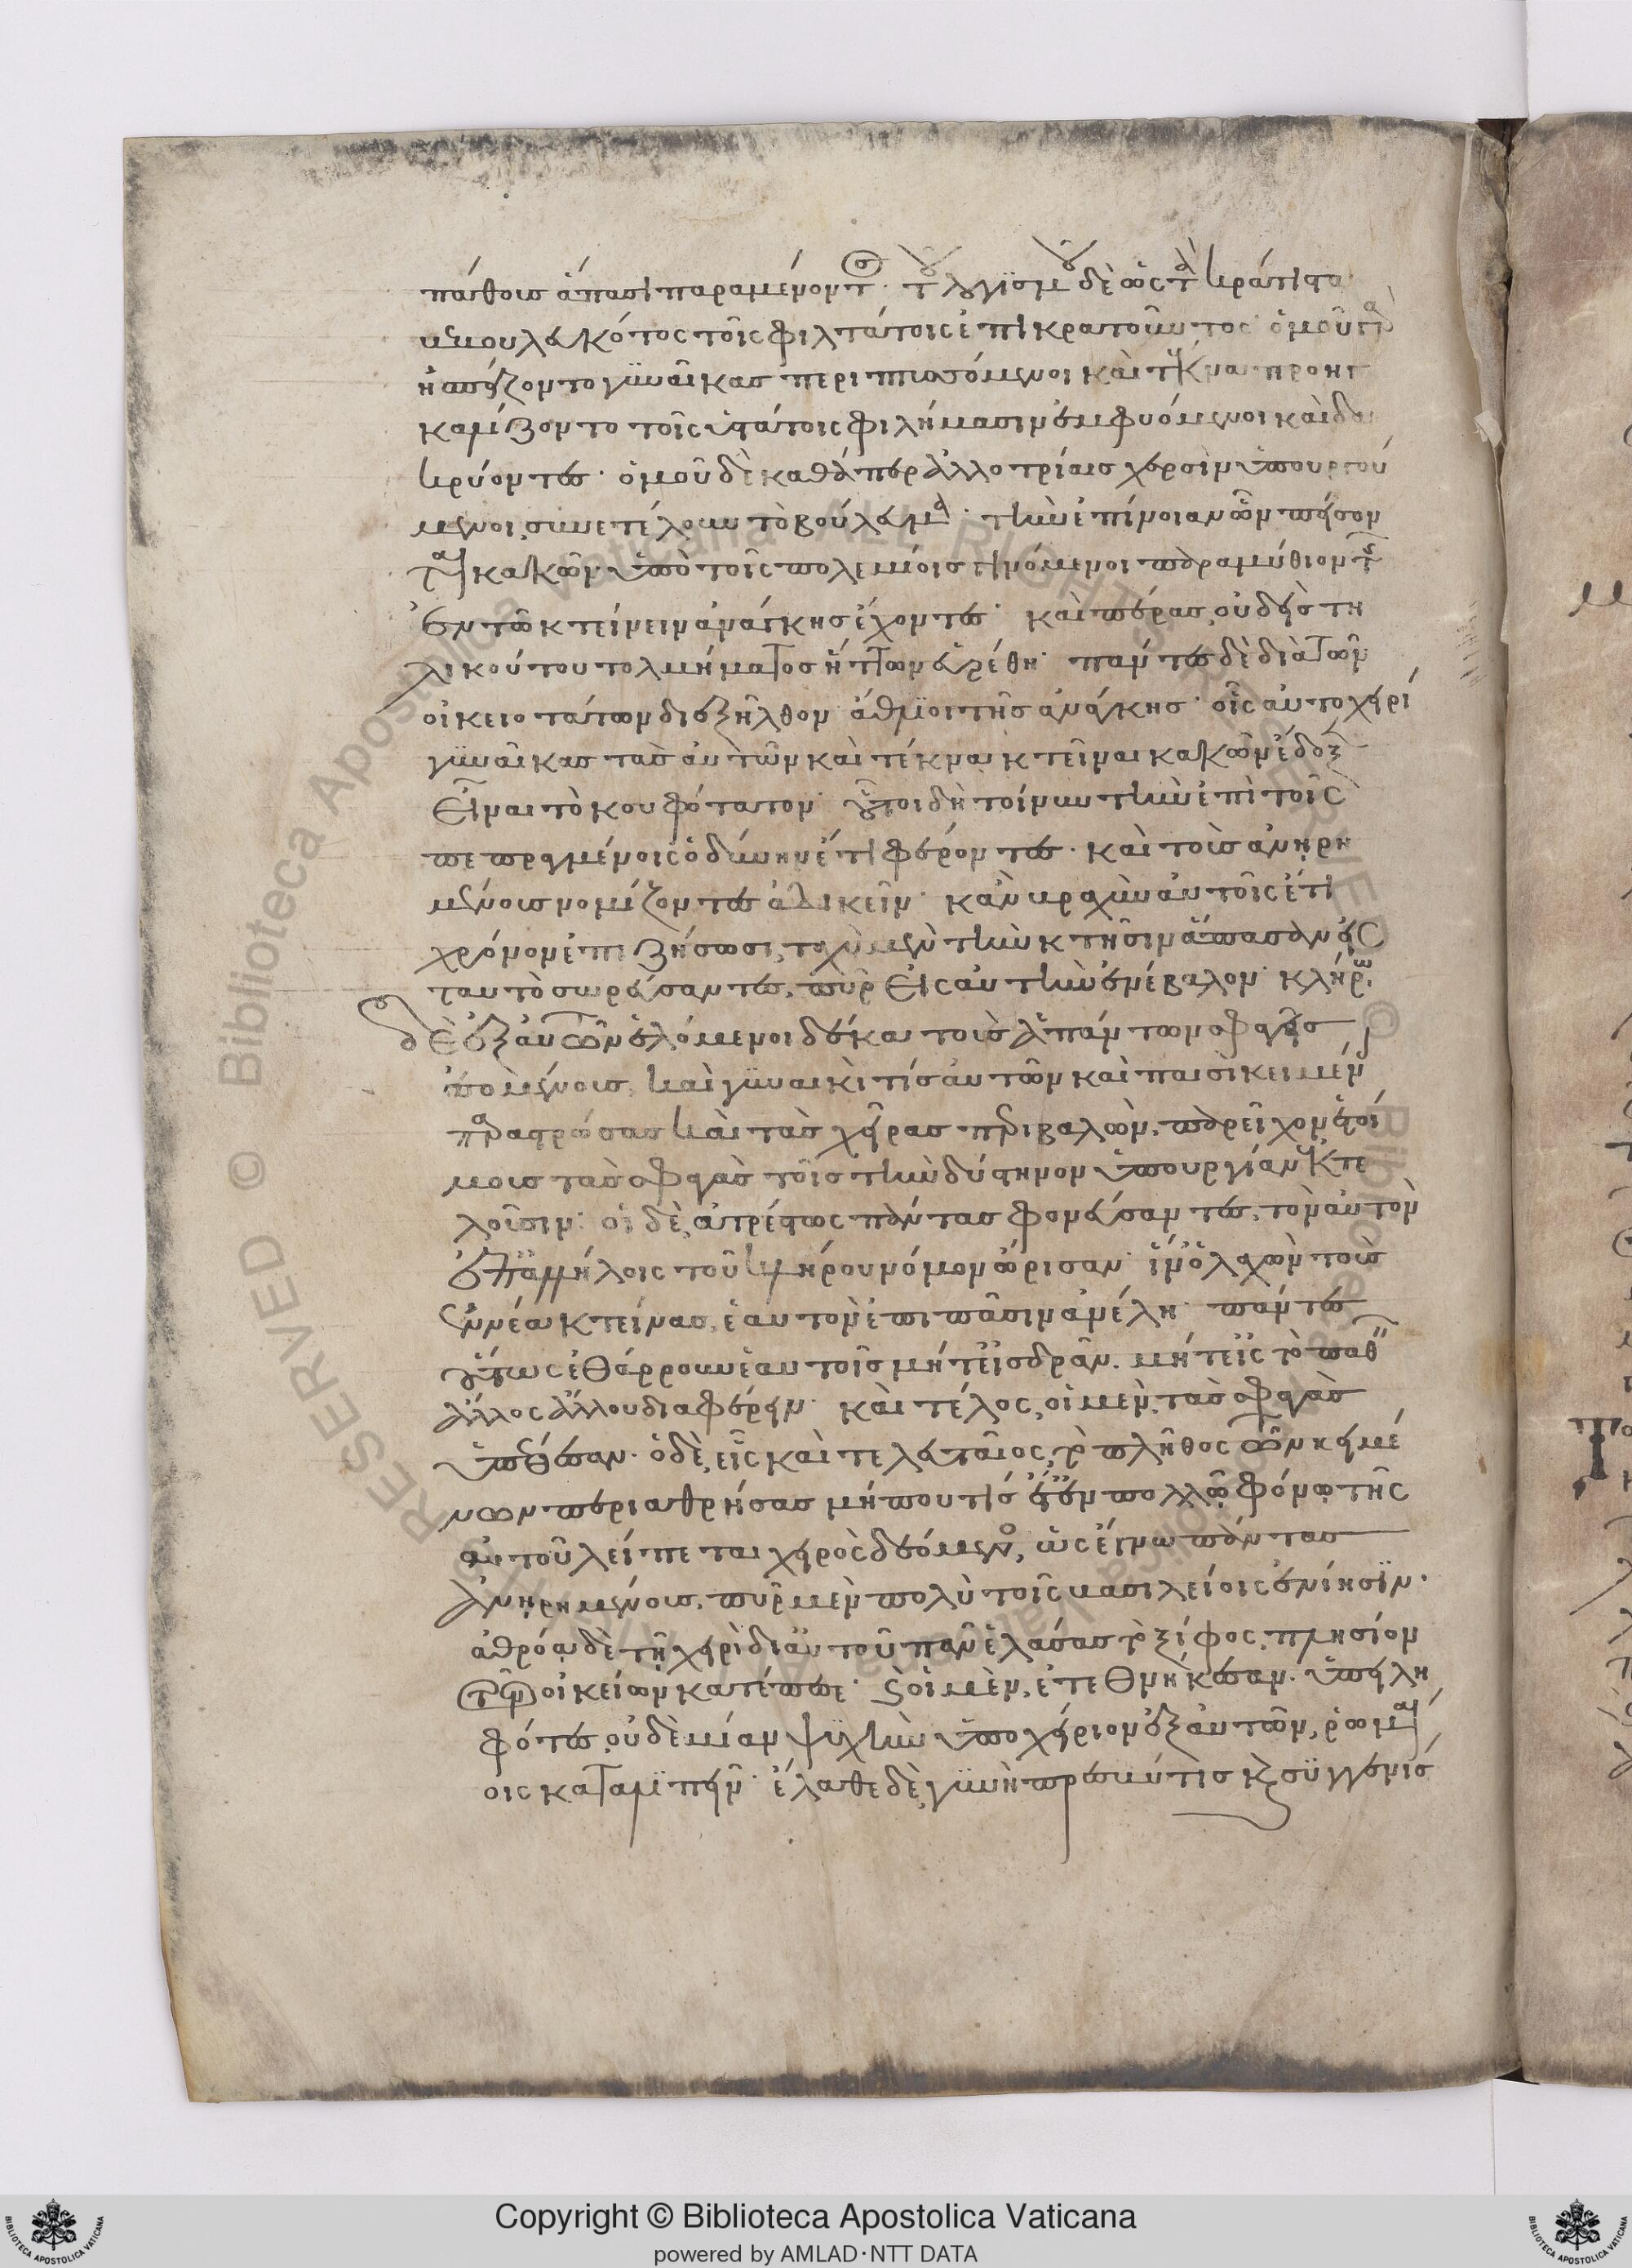 πάθους ἅπασι παραμένοντος· τοῦ λογισμοῦ δὲ ὡς τὰ κράτιστα
βεβουλευκότος τοῖς φιλτάτοις ἐπικρατοῦντος· ὁμοῦ γὰρ
ἠσπάζοντο γυναῖκας περιπτυσσόμενοι καὶ τέκνα προση
καλίζοντο τοῖς ὑστάτοις φιλήμασιν ἐμφυόμενοι καὶ δα
κρύοντες· ὁμοῦ δὲ καθάπερ ἀλλοτρίαις χερσὶν ὑπουργού
μενοι, συνετέλουν τὸ βούλευμα· τὴν ἐπίνοιαν ὧν πείσον
ται κακῶν ὑπὸ τοῖς πολεμίοις γινόμενοι παραμύθιον τῆς
ἐν τῷ κτείνειν ἀνάγκης ἔχοντες· καὶ πέρας, οὐδεὶς τη
λικούτου τολμήματος ἥττων εὑρέθη· πάντες δὲ διὰ τῶν
οἰκειοτάτων διεξῆλθον ἄθλιοι τῆς ἀνάγκης· οἷς αὐτοχειρὶ
γυναῖκας τὰς αὐτῶν καὶ τέκνα κτεῖναι κακῶν ἔδοξεν
εἶναι τὸ κουφότατον· οὗτοι δὴ τοίνυν τὴν ἐπὶ τοῖς
πεπραγμένοις ὀδύνην ἔτι φέροντες· καὶ τοὺς ἀνῃρη
μένους νομίζοντες ἀδικεῖν· κἂν βραχὺν αὐτοῖς ἔτι
χρόνον ἐπιζήσωσι, ταχὺ μὲν τὴν κτῆσιν ἅπασαν εἰς
ταυτὸ σωρεύσαντες, πῦρ εἰς αὐτὴν ἐνέβαλον· κλήρῳ
δὲ ἐξ αὐτῶν ἑλόμενοι δέκα τοὺς ἁπάντων σφαγεῖς
ἐσομένους, καὶ γυναικί τις αὐτῶν καὶ παισὶ κειμένοις
παραστρώσας καὶ τὰς χεῖρας περιβαλών, παρεῖχον ἑτοί
μους τὰς σφαγὰς τοῖς τὴν δύστηνον ὑπουργίαν ἐκτε
λοῦσιν· οἱ δὲ, ἀτρέπτως πάντας φονεύσαντες, τὸν αὐτὸν
ἐπ' ἀλλήλοις τοῦ κλήρου νόμον ὥρισαν· ἵν' ὁ λαχὼν τοὺς
ἐννέα κτείνας, ἑαυτὸν ἐπὶ πᾶσιν ἀνέλῃ· πάντες
οὕτως ἐθάρρουν ἑαυτοῖς μήτ' εἰς δρᾶν· μήτ' εἰς τὸ παθεῖν
ἄλλος ἄλλου διαφέρειν· καὶ τέλος, οἱ μὲν, τὰς σφαγὰς
ὑπέθεσαν· ὁ δὲ, εἷς καὶ τελευταῖος, τὸ πλῆθος τῶν κειμέ
νων περιαθρήσας μήπου τὶς ἔτ' ἐν πολλῷ φόνῳ τῆς
αὐτοῦ λείπεται χειρὸς δεόμενος, ὡς ἔγνω πάντας
ἀνῃρημένους, πῦρ μὲν πολὺ τοῖς βασιλείοις ἐνίησιν·
ἀθρόᾳ δὲ τῇ χειρὶ δι' αὐτοῦ πᾶν ἐλάσας τὸ ξίφος, πλησίον
τῶν οἰκείων κατέπεσε· καὶ οἱ μὲν, ἐτεθνήκεσαν· ὑπειλη
φότες, οὐδὲ μίαν ψυχὴν ὑποχείριον ἐξ αὐτῶν, ῥωμαί
οις καταλιπεῖν· ἔλαθε δὲ, γυνὴ πρεσβῦτις καὶ συγγενὶς